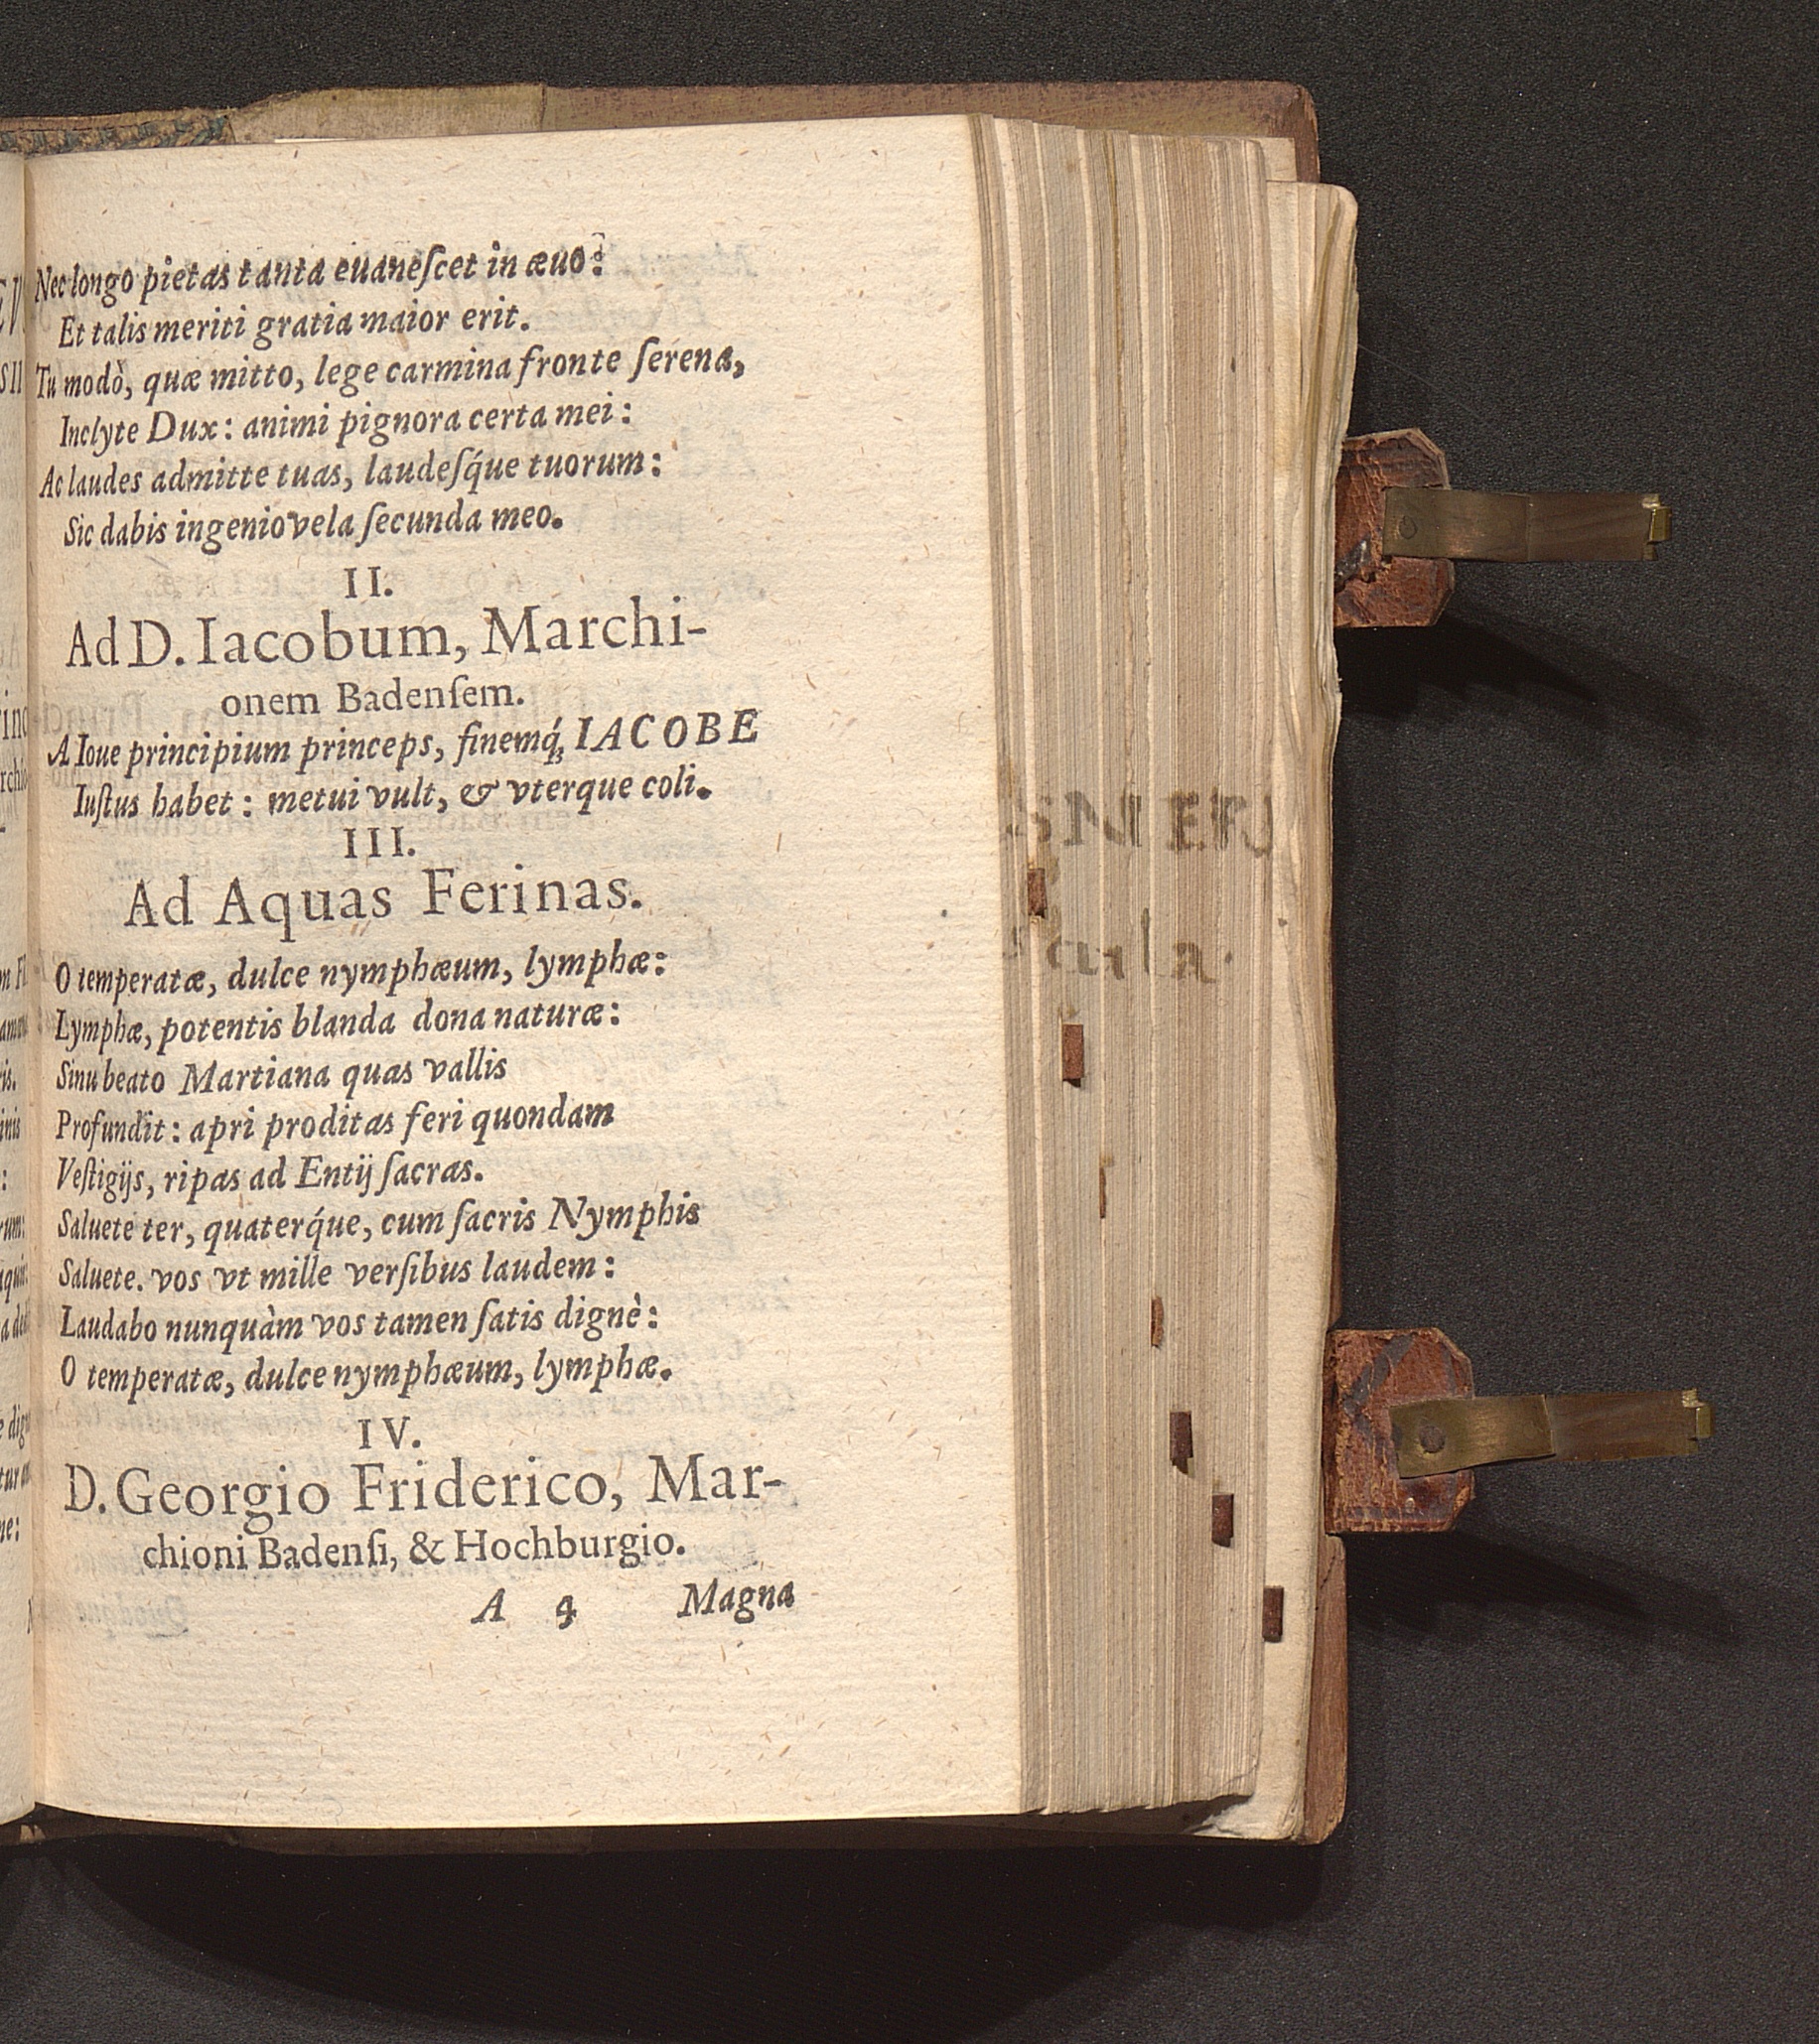 Nec longo pietas tanta euaneſcet in æuo:
Et talis meriti gratia maior erit.
Tu modò, quæ mitto, lege carmina fronte ſerena,
Inclyte Dux: animi pignora certa mei:
Ac laudes admitte tuas, laudeſq́ue tuorum:
Sic dabis ingenio vela ſecunda meo.
II.
Ad D. Iacobum, Marchi-
onem Badenſem.
A Ioue principium princeps, finemq́, IACOBE
Iuſtus habet: metui vult, & vterque coli.
III.
Ad Aquas Ferinas.
O temperatæ, dulce nymphæum, lymphæ:
Lymphæ, potentis blanda dona naturæ:
Sinu beato Martiana quas vallis
Profundit: apri proditas feri quondam
Veſtigijs, ripas ad Entij ſacras.
Saluete ter, quaterq́ue, cum ſacris Nymphis
Saluete. vos vt mille verſibus laudem:
Laudabo nunquàm vos tamen ſatis dignè:
O temperatæ, dulce nymphæum, lymphæ.
IV.
D. Georgio Friderico, Mar-
chioni Badenſi, & Hochburgio.
A 4 Magna